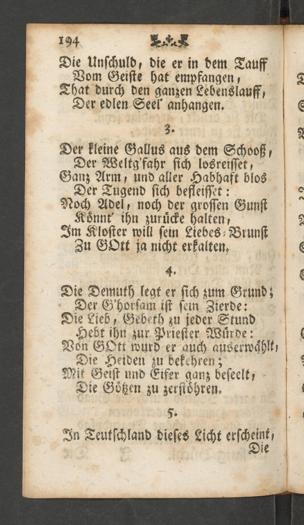 194
Die Unschuld, die er in dem Tauff
Vom Geiste hat empfangen,
That durch den ganzen Lebenslauff,
Der edlen Seel' anhangen.
3.
Der kleine Gallus aus dem Schooß,
Der Weltg'fahr sich losreisset,
Ganz Arm, und aller Habhaft blos
Der Tugend sich befleisset:
Noch Adel, noch der grossen Gunst
Könnt' ihn zurücke halten,
Im Kloster will sein Liebes-Brunst
Zu GOtt ja nicht erkalten.
4.
Die Demuth legt er sich zum Grund;
Der G'horsam ist sein Zierde:
Die Lieb, Gebeth zu jeder Stund
Hebt ihn zur Priester Würde:
Von GOtt wurd er auch auserwählt,
Die Heiden zu bekehren;
Mit Geist und Eifer ganz beseelt,
Die Götzen zu zerstöhren.
5.
In Teutschland dieses Licht erscheint,
Die